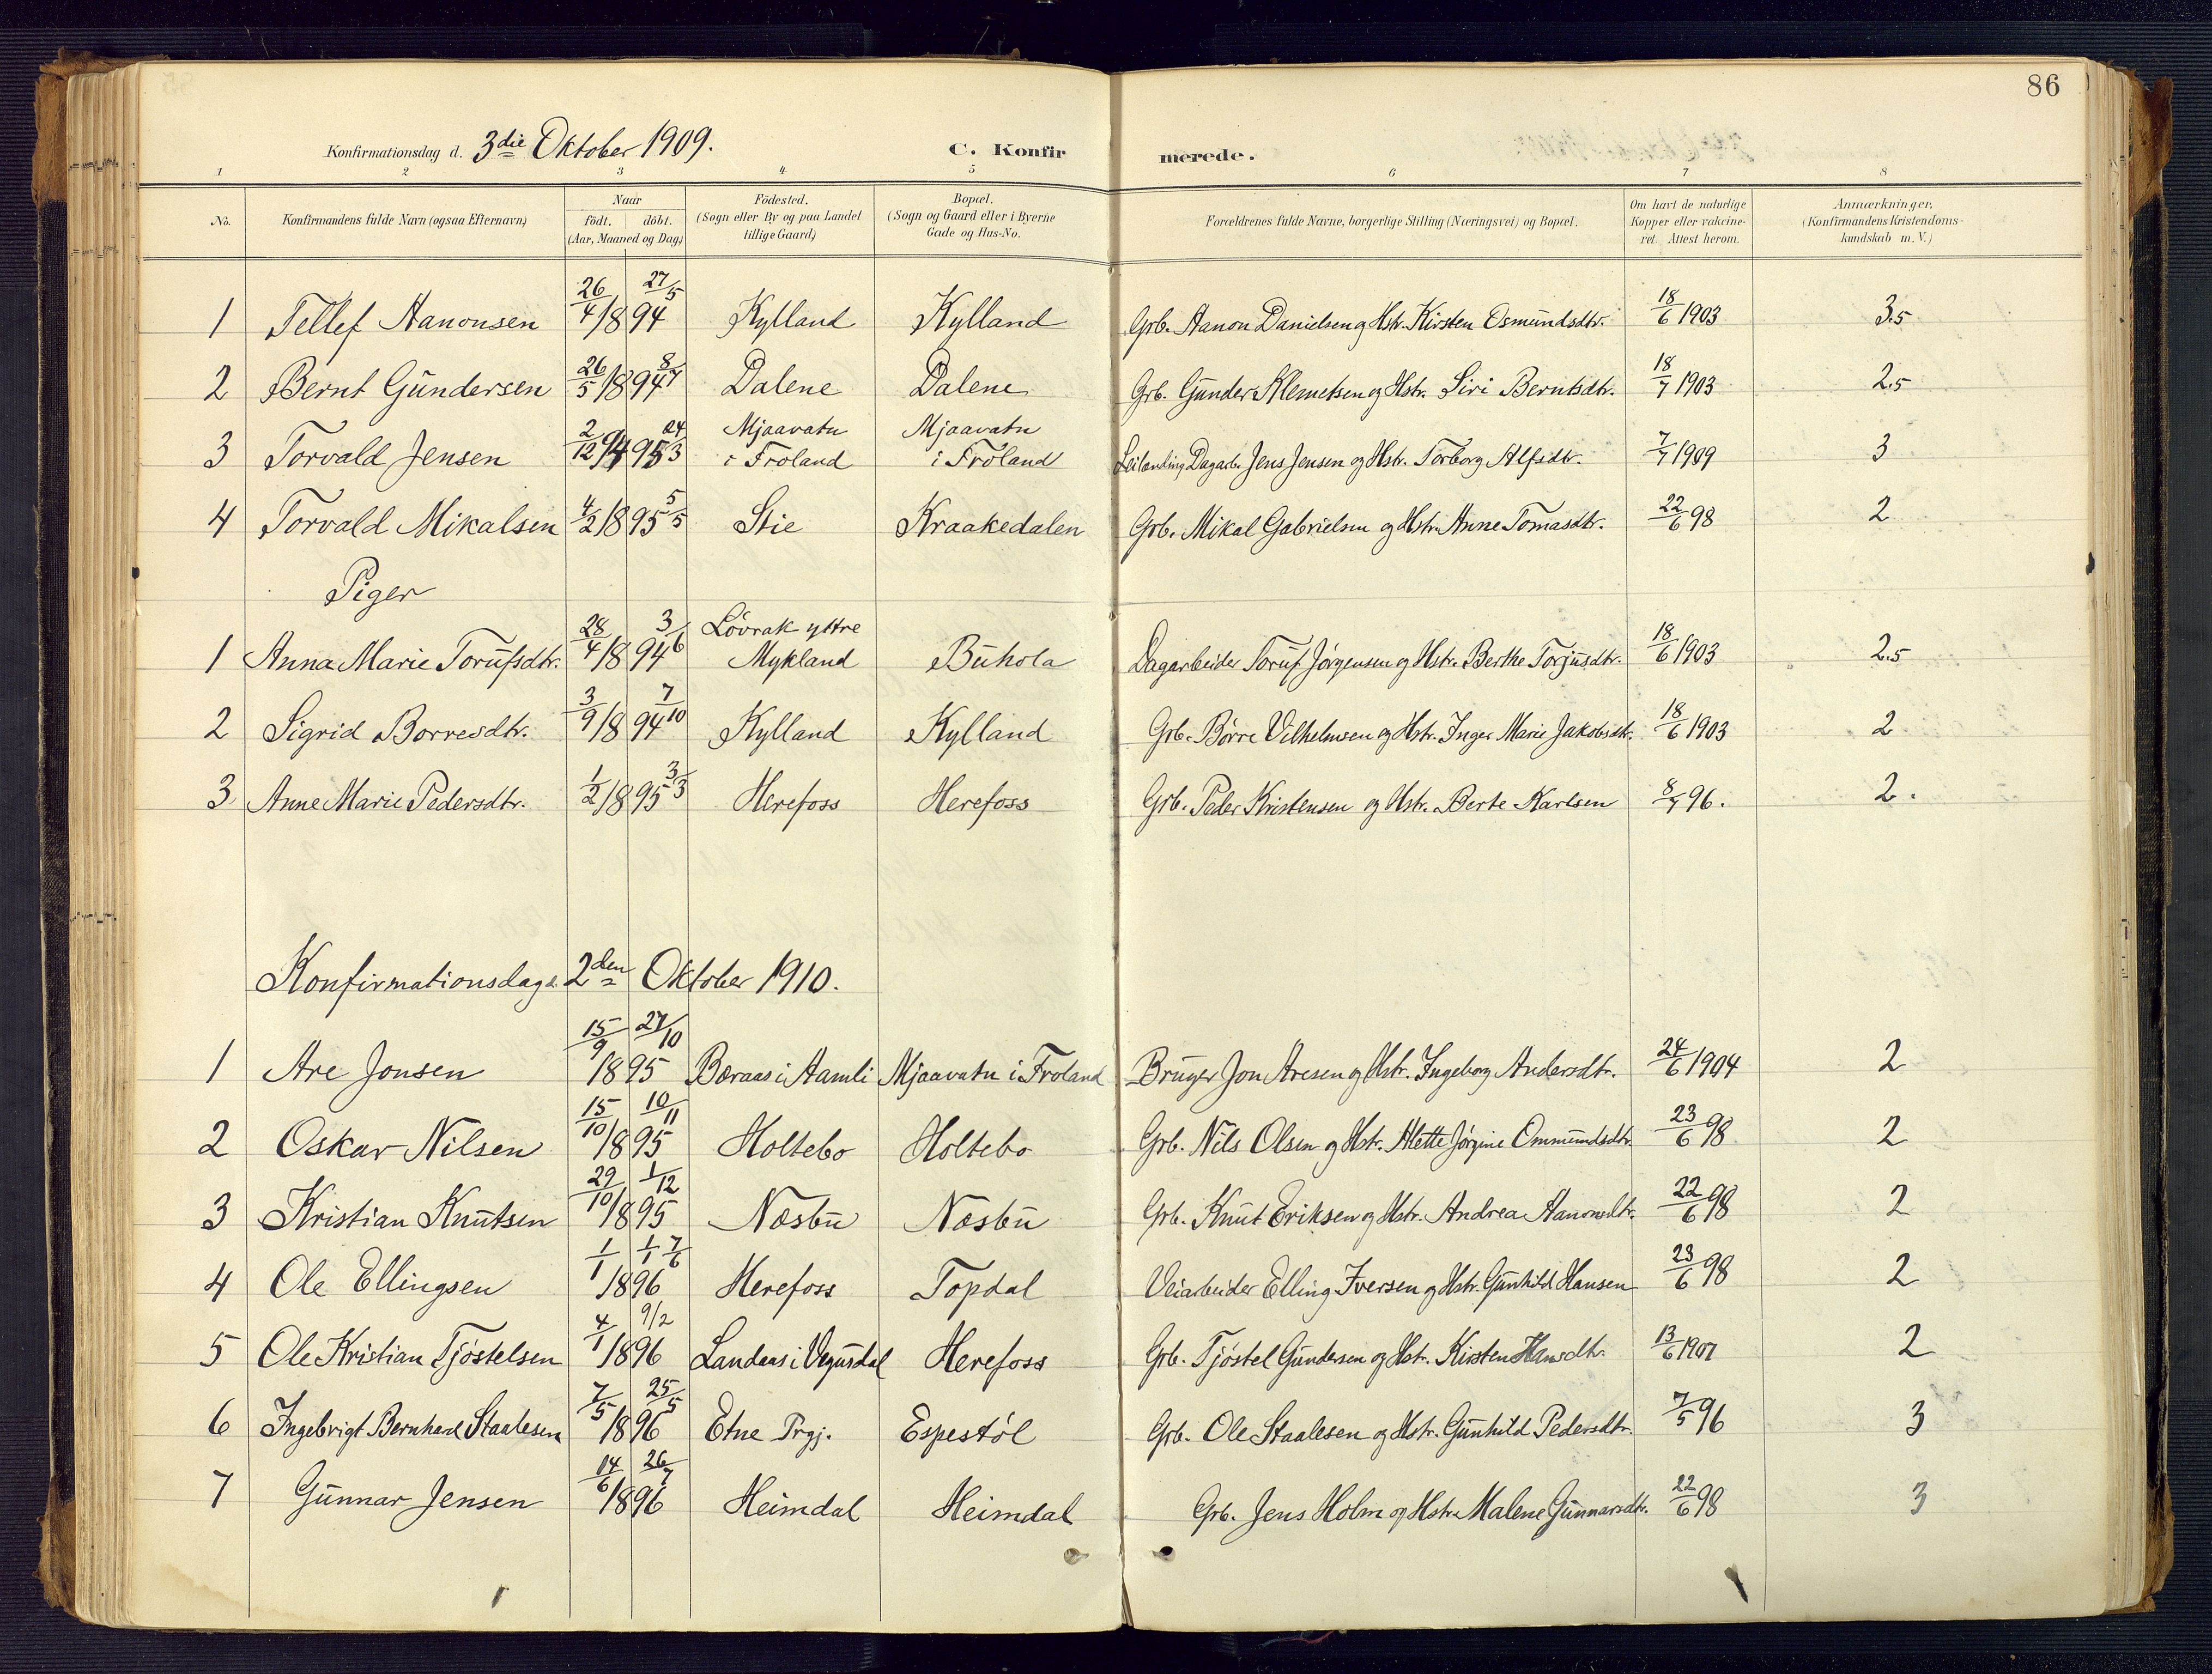 86
Konfirmationsdag d. 3die Oktober 1909. C. Konfirmerede.
1 2 3 4 5 6 7 8
No. Konfirmandens fulde Navn (ogsaa Efternavn) Naar födt. döbt. (Aar, Maaned og Dag) Födested. (Sogn eller By og paa Landet tillige Gaard) Bopæl. (Sogn og Gaard eller i Byerne Gade og Hus-No. Forældrenes fulde Navne, borgerlige Stilling (Næringsvei) og Bopæl. Om havt de naturlige Kopper eller vakcineret. Attest herom. Anmærkninger. (Konfirmandens Kristendomskundskab m. V.)
1 Tellef Aanonsen 26/4 1894 27/5 Kylland Kylland Grb. Aanon Danielsen og Hstr. Kirsten Osmundsdtr. 18/6 1903 3.5
2 Bernt Gundersen 26/5 1894 8/7 Dalene Dalene Grb. Gunder Klemetsen og Hstr. Siri Berntsdtr. 18/7 1903 2.5
3 Torvald Jensen 2/12 94 95 24/3 Mjaavatn i Froland Mjaavatn i Froland Leilending, Dagarb. Jens Jensen og Hstr. Torborg Alfsdtr. 7/7 1909 3
4 Torvald Mikalsen 4/2 1895 5/5 Stie Kraakedalen Grb. Mikal Gabrielsen og Hstr. Anne Tomasdtr. 22/6 98 2
Piger
1 Anna Marie Torufsdtr. 28/4 1894 3/6 Lövrak yttre Mykland Buhola Dagarbeider Toruf Jörgensen og Hstr. Berthe Torjusdtr. 18/6 1903 2.5
2 Sigrid Borresdtr. 3/9 1894 7/10 Kylland Kylland Grb. Börre Vilhelmsen og Hstr. Inger Marie Jakobsdtr. 18/6 1903 2
3 Anne Marie Pedersdtr. 1/2 1895 3/3 Herefoss Herefoss Grb. Peder Kristensen og Hstr. Berte Karlsen 8/7 96. 2.
Konfirmationsdag d. 2den Oktober 1910.
1 Are Jonsen 15/9 1895 27/10 Børaas i Aamli Mjaavatn i Froland Bruger Jon Aresen og Hstr. Ingeborg Andersdtr. 24/6 1904 2
2 Oskar Nilsen 15/10 1895 10/11 Holtebo Holtebo Grb. Nils Olsen og Hstr. Alette Jörgine Ommundsdtr. 23/6 98 2
3 Kristian Knutsen 29/10 1895 1/12 Næsbu Næsbu Grb. Knut Eriksen og Hstr. Andrea Aanonsdtr. 22/6 98 2
4 Ole Ellingsen 1/1 1896 1/1 7/6 Herefoss Topdal Veiarbeider Elling Iversen og Hstr. Gunhild Hansen 23/6 98 2
5 Ole Kristian Tjöstelsen 4/1 1896 9/2 Landaas i Vegusdal Herefoss Grb. Tjöstel Gundersen og Hstr. Kirsten Hansdtr. 13/6 1907 2
6 Ingebrigt Bernhard Staalesen 7/5 1896 25/5 Etne Prgj. Espestöl Grb. Ole Staalesen og Hstr. Gunhild Pedersdtr. 7/5 96 3
7 Gunnar Jensen 14/6 1896 26/7 Heimdal Heimdal Grb. Jens Holm og Hstr. Malene Gunnarsdtr. 22/6 98 3